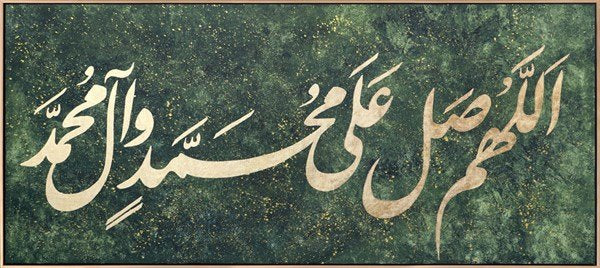 اَللّٰهُمَ صَلِ عَلَى مُحَمَّدٍ وَآلِ مُحَمَّدٍ